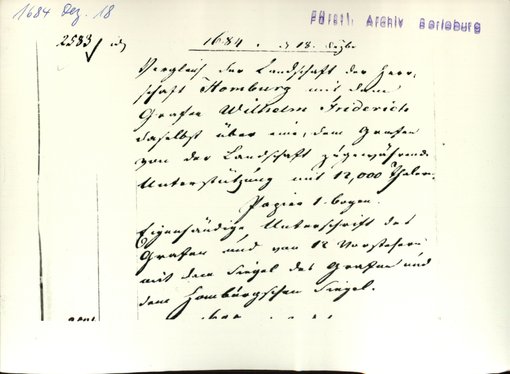 1684 Dez. 18
Fürstl. Archiv Berleburg
2583
1684. d 18. Dezbr
Vergleich der Landschaft der Herr-
schaft Homburg mit dem
Grafen Wilhelm Friderich
daselbst über eine, dem Grafen
von der Landschaft zu gewährende
Unterstützung mit 12,000 Thaler.
Papier 1. bogen.
Eigenhändige Unterschrift des
Grafen und von 12 Vorstehern
mit dem Siegel des Grafen und
dem Homburgschen Siegel.